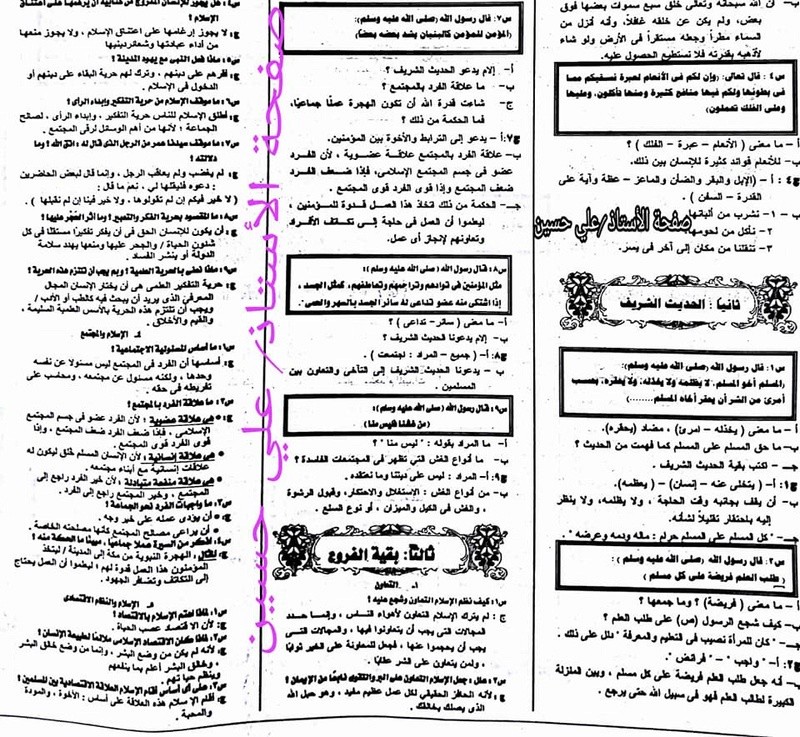 ب- أن الله سبحانه وتعالى خلق سبع سموات بعضها فوق
بعض، ولم يكن عن خلقه غافلاً، وأنه أنزل من
السماء مطراً وجعله مستقراً فى الأرض ولو شاء
لأذهبه بقدرته فلا نستطيع الحصول عليه.
س٤ : قال تعالى: (وإن لكم فى الأنعام لعبرة نسقيكم مما
فى بطونها ولكم فيها منافع كثيرة ومنها تأكلون، وعليها
وعلى الفلك تحملون)
أ - ما معنى ( الأنعام - عبرة - الفلك ) ؟
ب- للأنعام فوائد كثيرة للإنسان بين ذلك.
ج٤ : أ- (الإبل والبقر والضأن والماعز - عظة وآية على
القدرة - السفن ) .
ب - ١- نشرب من ألبانها
٢- نأكل من لحومها
٣- تنقلنا من مكان إلى آخر فى يسر.
صفحة الأستاذ/علي حسين
ثانيًا : الحديث الشريف
س١: قال رسول الله (صلى الله عليه وسلم):
(المسلم أخو المسلم، لا يظلمه ولا يخذله، ولا يحقره، بحسب
أمرئ من الشر أن يحقر أخاه المسلم........)
أ - ما معنى ( يخذله - امرئ) ، مضاد (يحقره).
ب- ما حق المسلم على المسلم كما فهمت من الحديث ؟
جـ - اكتب بقية الحديث الشريف .
ج١: أ- (يتخلى عنه - إنسان) - (يعظمه).
ب- أن يقف بجانبه وقت الحاجة ، ولا يظلمه، ولا ينظر
إليه باحتقار تقليلاً لشأنه.
جـ- " كل المسلم على المسلم حرام : ماله ودمه وعرضه " .
س٢: قال رسول الله (صلى الله عليه وسلم) :
( طلب العلم فريضة على كل مسلم )
أ - ما معنى ( فريضة) ؟ وما جمعها ؟
ب- كيف شجع الرسول (ص) على طلب العلم ؟
جـ- " كان للمرأة نصيب فى التعليم والمعرفة " دلل على ذلك .
ج٢: أ- " واجب " - " فرائض ".
ب- أنه جعل طلب العلم فريضة على كل مسلم ، وبين المنزلة
الكبيرة لطالب العلم فهو فى سبيل الله حتى يرجع .
س٧: قال رسول الله (صلى الله عليه وسلم):
(المؤمن للمؤمن كالبنيان يشد بعضه بعضًا)
أ- إلام يدعو الحديث الشريف ؟
ب- ما علاقة الفرد بالمجتمع ؟
ج- شاءت قدرة الله أن تكون الهجرة عملًا جماعيًا،
فما الحكمة من ذلك ؟
ج٧: أ - يدعو إلى الترابط والأخوة بين المؤمنين.
ب- علاقة الفرد بالمجتمع علاقة عضوية ، لأن الفرد
عضو فى جسم المجتمع الإسلامى، فإذا ضعف الفرد
ضعف المجتمع وإذا قوى الفرد قوى المجتمع .
جـ- الحكمة من ذلك اتخاذ هذا العمل قدوة للمؤمنين ،
ليعلموا أن العمل فى حاجة إلى تكاتف الأفراد
وتعاونهم لإنجاز أى عمل.
س٨: قال رسول الله (صلى الله عليه وسلم) :
مثل المؤمنين فى توادهم وتراحمهم وتعاطفهم، كمثل الجسد ،
إذا اشتكى منه عضو تداعى له سائر الجسد بالسهر والحمى".
أ- ما معنى ( سائر- تداعى ) ؟
ب- إلام يدعونا الحديث الشريف ؟
ج٨: أ- ( جميع - المراد : اجتمعت ) .
ب - يدعونا الحديث الشريف إلى التأخى والتعاون بين
المسلمين .
س٩: قال رسول الله (صلى الله عليه وسلم) :
(من غشنا فليس منا)
أ- ما المراد بقوله : " ليس منا " ؟
ب- ما أنواع الغش التى تظهر فى المجتمعات الفاسدة ؟
ج٩: أ- المراد : ليس على ديننا وما نعتقده .
ب- من أنواع الغش : الاستغلال والاحتكار، وقبول الرشوة
، والغش فى الكيل والميزان ، أو نوع السلع .
ثالثًا: بقية الفروع
١- التعاون
س١: كيف نظم الإسلام التعاون وشجع عليه ؟
ج : لم يترك الإسلام التعاون لأهواء الناس ، وإنما حدد
المجالات التى يجب أن يتعاونوا فيها ، والمجالات التى
يجب أن يحجموا عنها ، فجعل للمعاونة على الخير ثوابًا
، ولمن يتعاون على الشر عقابًا .
س٢: علل: جعل الإسلام التعاون على البر والتقوى نابعًا من الإيمان ؟
ج: لأنه الحافز الحقيقى لكل عمل عظيم مفيد ، وهو حبل الله
الذى يصلك بخالقك .
صفحة الأستاذ/ علي حسين
الإسلام ؟
ج: لا يجوز إرغامها على اعتناق الإسلام ، ولا يجوز منعها
من أداء عبادتها وشعائردينيها
س٥: ماذا فعل النبى مع يهود المدينة ؟
ج: أقرهم على دينهم ، وترك لهم حرية البقاء على دينهم أو
الدخول فى الإسلام .
س٦: ما موقف الإسلام من حرية التفكير وإبداء الرأى ؟
ج: أطلق الإسلام للناس حرية التفكير ، وإبداء الرأى ، لصالح
الجماعة ؛ لأنها من أهم الوسائل لرقى المجتمع .
س٧: ما موقف سيدنا عمر من الرجل الذى قال له : اتق الله ؟ وما
دلالته ؟
ج: لم يغضب ولم يعاقب الرجل ، وإنما قال لبعض الحاضرين
: دعوه فليقلها لي ، نعم ما قال :
( لا خير فيكم إن لم تقولوها ، ولا خير فينا إن لم نقبلها ) .
س٨: ما المقصود بحرية الفكر والتعبير ؟ وما أثر الحجر عليها ؟
ج: أن يكون للإنسان الحق فى أن يفكر تفكيرًا مستقلًا فى كل
شئون الحياة / والحجر عليها ومنعها يهدد سلامة
الدولة أو ينشر الفساد .
س٩: ماذا تعنى بالحرية العلمية ؟ وبم يجب أن تلتزم هذه الحرية ؟
ج: حرية التفكير العلمى هى أن يختار الإنسان المجال
المعرفى الذى يريد أن يبحث فيه كالطب أو الأدب /
ويجب أن تلتزم هذه الحرية بالأسس العلمية السليمة ،
والقيم والأخلاق .
الإسلام والمجتمع
س١: ما أساس المسئولية الاجتماعية ؟
ج: أساسها أن الفرد فى المجتمع ليس مسئولا عن نفسه
وحدها ، ولكنه مسئول عن مجتمعه ، ومحاسب على
تفريطه فى حقه .
س٢: ما علاقة الفرد بالمجتمع ؟
ج: • هى علاقة عضوية ؛ لأن الفرد عضو فى جسم المجتمع
الإسلامى ، فإذا ضعف الفرد ضعف المجتمع ، وإذا
قوى الفرد قوى المجتمع .
• هى علاقة إنسانية ؛ لأن الإنسان المسلم خلق ليكون له
علاقات إنسانية مع أبناء مجتمعه .
• هى علاقة منفعة متبادلة ؛ لأن خير الفرد راجع إلى
المجتمع ، وخير المجتمع راجع إلى الفرد .
س٣: ما واجبات الفرد نحو الجماعة ؟
ج: • أن يؤدى عمله على خير وجه .
• أن يراعى مصالح المجتمع كأنها مصلحته الخاصة .
س٤: اذكر من السيرة عملا جماعيا، مبينًا ما الحكمة منه ؟
ج: الهجرة النبوية من مكة إلى المدينة / ليتخذ
المؤمنون هذا العمل قدوة لهم ؛ ليعلموا أن العمل يحتاج
إلى التكاتف وتضافر الجهود .
الإسلام والنظام الاقتصادى
س١: لماذا اهتم الإسلام بالاقتصاد ؟
ج: لأن الاقتصاد عصب الحياة .
س٢: لماذا كان الاقتصاد الإسلامى ملائمًا لطبيعة الإنسان ؟
ج: لأنه لم يكن من وضع البشر ، وإنما من وضع خالق البشر
، وخالق البشر أعلم بما ينفعهم
وينظم حياتهم .
س٣: على أى أساس أقام الإسلام العلاقة الاقتصادية بين المسلمين ؟
ج: أقام الإسلام هذه العلاقة على أساس : الأخوة ، والمودة
والمحبة .